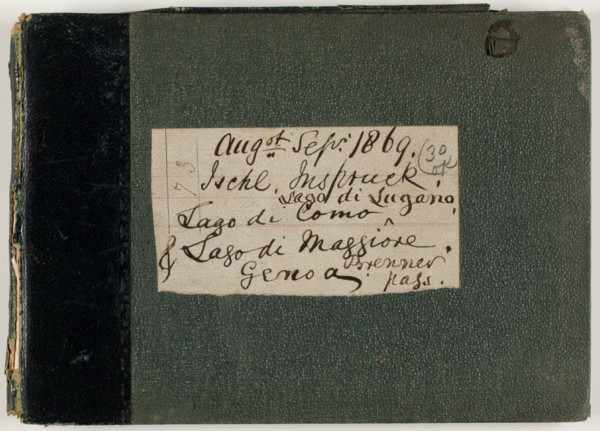 Augst. Sepr. 1869.
30
OK
73
Ischl, Inspruck.
Lago di Lugano,
Lago di Como
& Lago di Maggiôre.
Genoa
Brenner
pass.